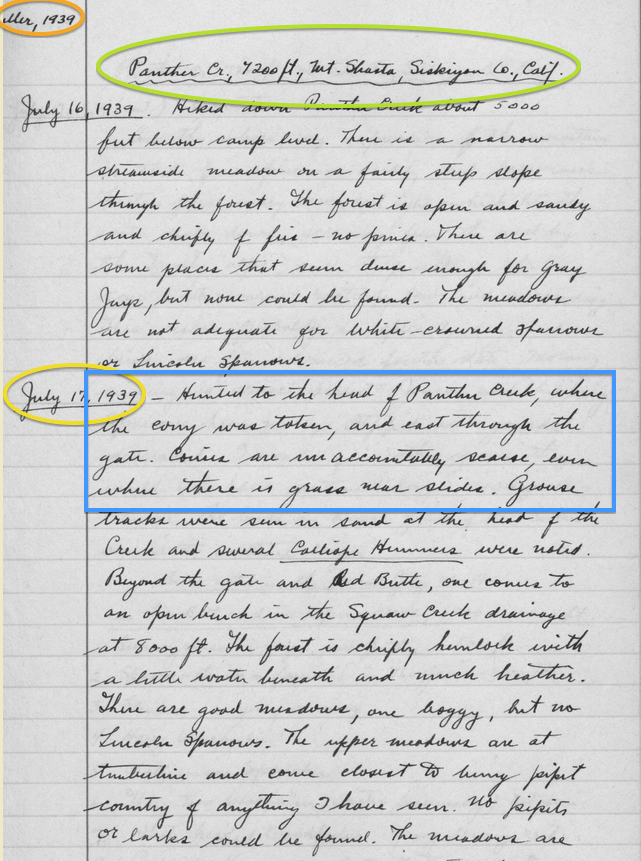 ller, 1939
Panther Cr., 7200 ft., Mt. Shasta, Siskiyou Co., Calif.
July 16, 1939. Hiked down Panther Creek about 5000
feet below camp level. There is a narrow
streamside meadow on a fairly steep slope
through the forest. The forest is open and sandy
and chiefly of firs – no pines. There are
some places that seem dense enough for Gray
Jays, but none could be found. The meadows
are not adequate for White-crowned Sparrows
or Lincoln Sparrows.
July 17, 1939 – Hunted to the head of Panther Creek, where
the cony was taken, and east through the
gate. Conies are unaccountably scarce, even
where there is grass near slides. Grouse
tracks were seen in sand at the head of the
Creek and several Calliope Hummers were noted.
Beyond the gate and Red Butte, one comes to
an open bench in the Squaw Creek drainage
at 8000 ft. The forest is chiefly hemlock with
a little water beneath and much heather.
There are good meadows, one boggy, but no
Lincoln Sparrows. The upper meadows are at
timberline and come closest to being pipit
country of anything I have seen. No pipits
or larks could be found. The meadows are